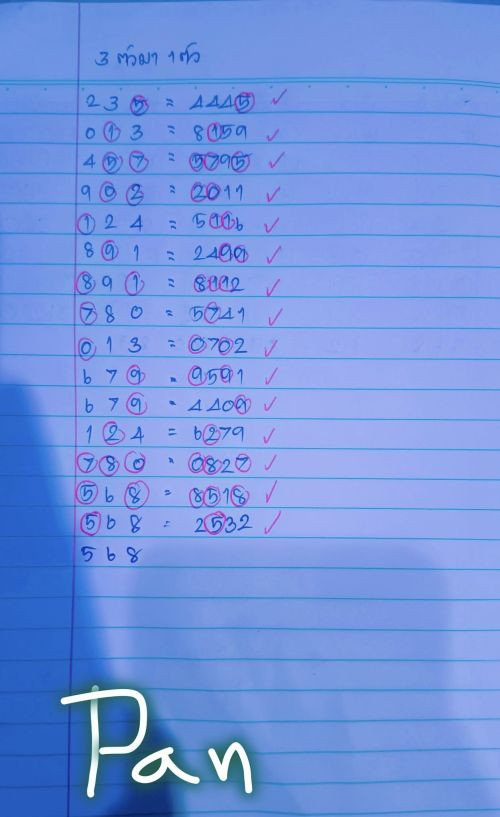 3 ตัวมา 1 ตัว
235 = 4445 ✓
013 = 8159 ✓
457 = 5795 ✓
902 = 2011 ✓
124 = 5116 ✓
891 = 2499 ✓
891 = 8112 ✓
780 = 5741 ✓
013 = 0702 ✓
679 = 9591 ✓
679 = 4409 ✓
124 = 6279 ✓
780 = 0827 ✓
568 = 8518 ✓
568 = 2532 ✓
568
Pan